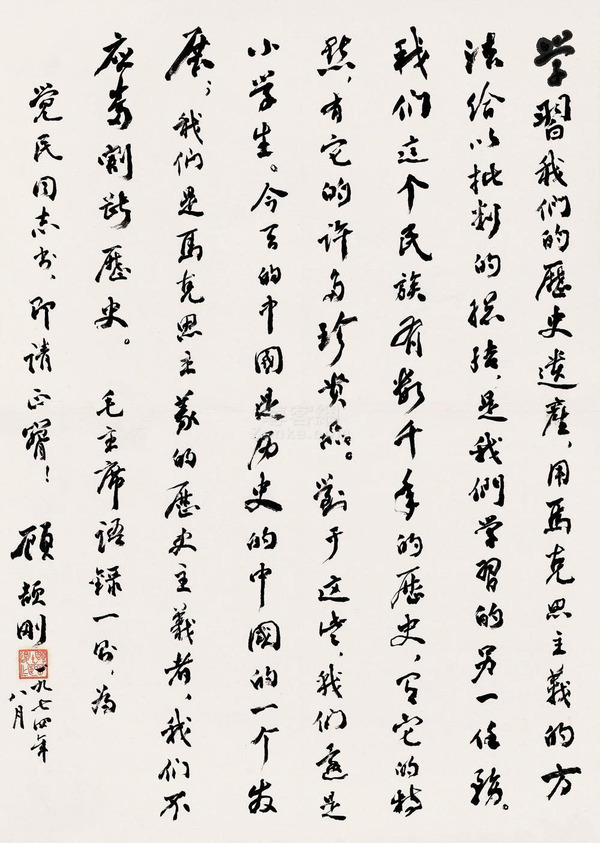 学習我们的歷史遗産，用馬克思主義的方
法给以批判的总结，是我們学習的另一任務。
我们這个民族有数千年的歷史，有它的特
點，有它的许多珍贵品。對于这些，我们還是
小学生。今天的中國是历史的中國的一个发
展；我们是馬克思主義的歷史主義者，我们不
应当割断歷史。 毛主席语錄一则，為
党民同志书，即请正窜！
顾颉刚
一九七四年
八月